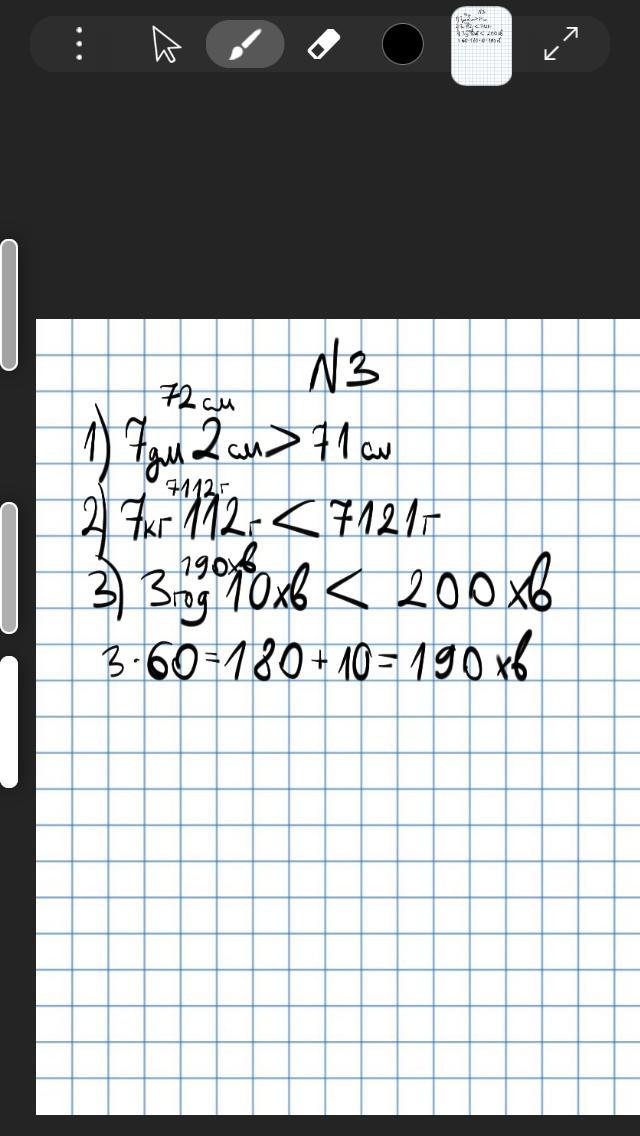 N3
72 см
1) 7дм 2 см > 71 см
7112 г
2) 7кг 112г < 7121г
190хв
3) 3год 10хв < 200 хв
3·60=180+10=190 хв